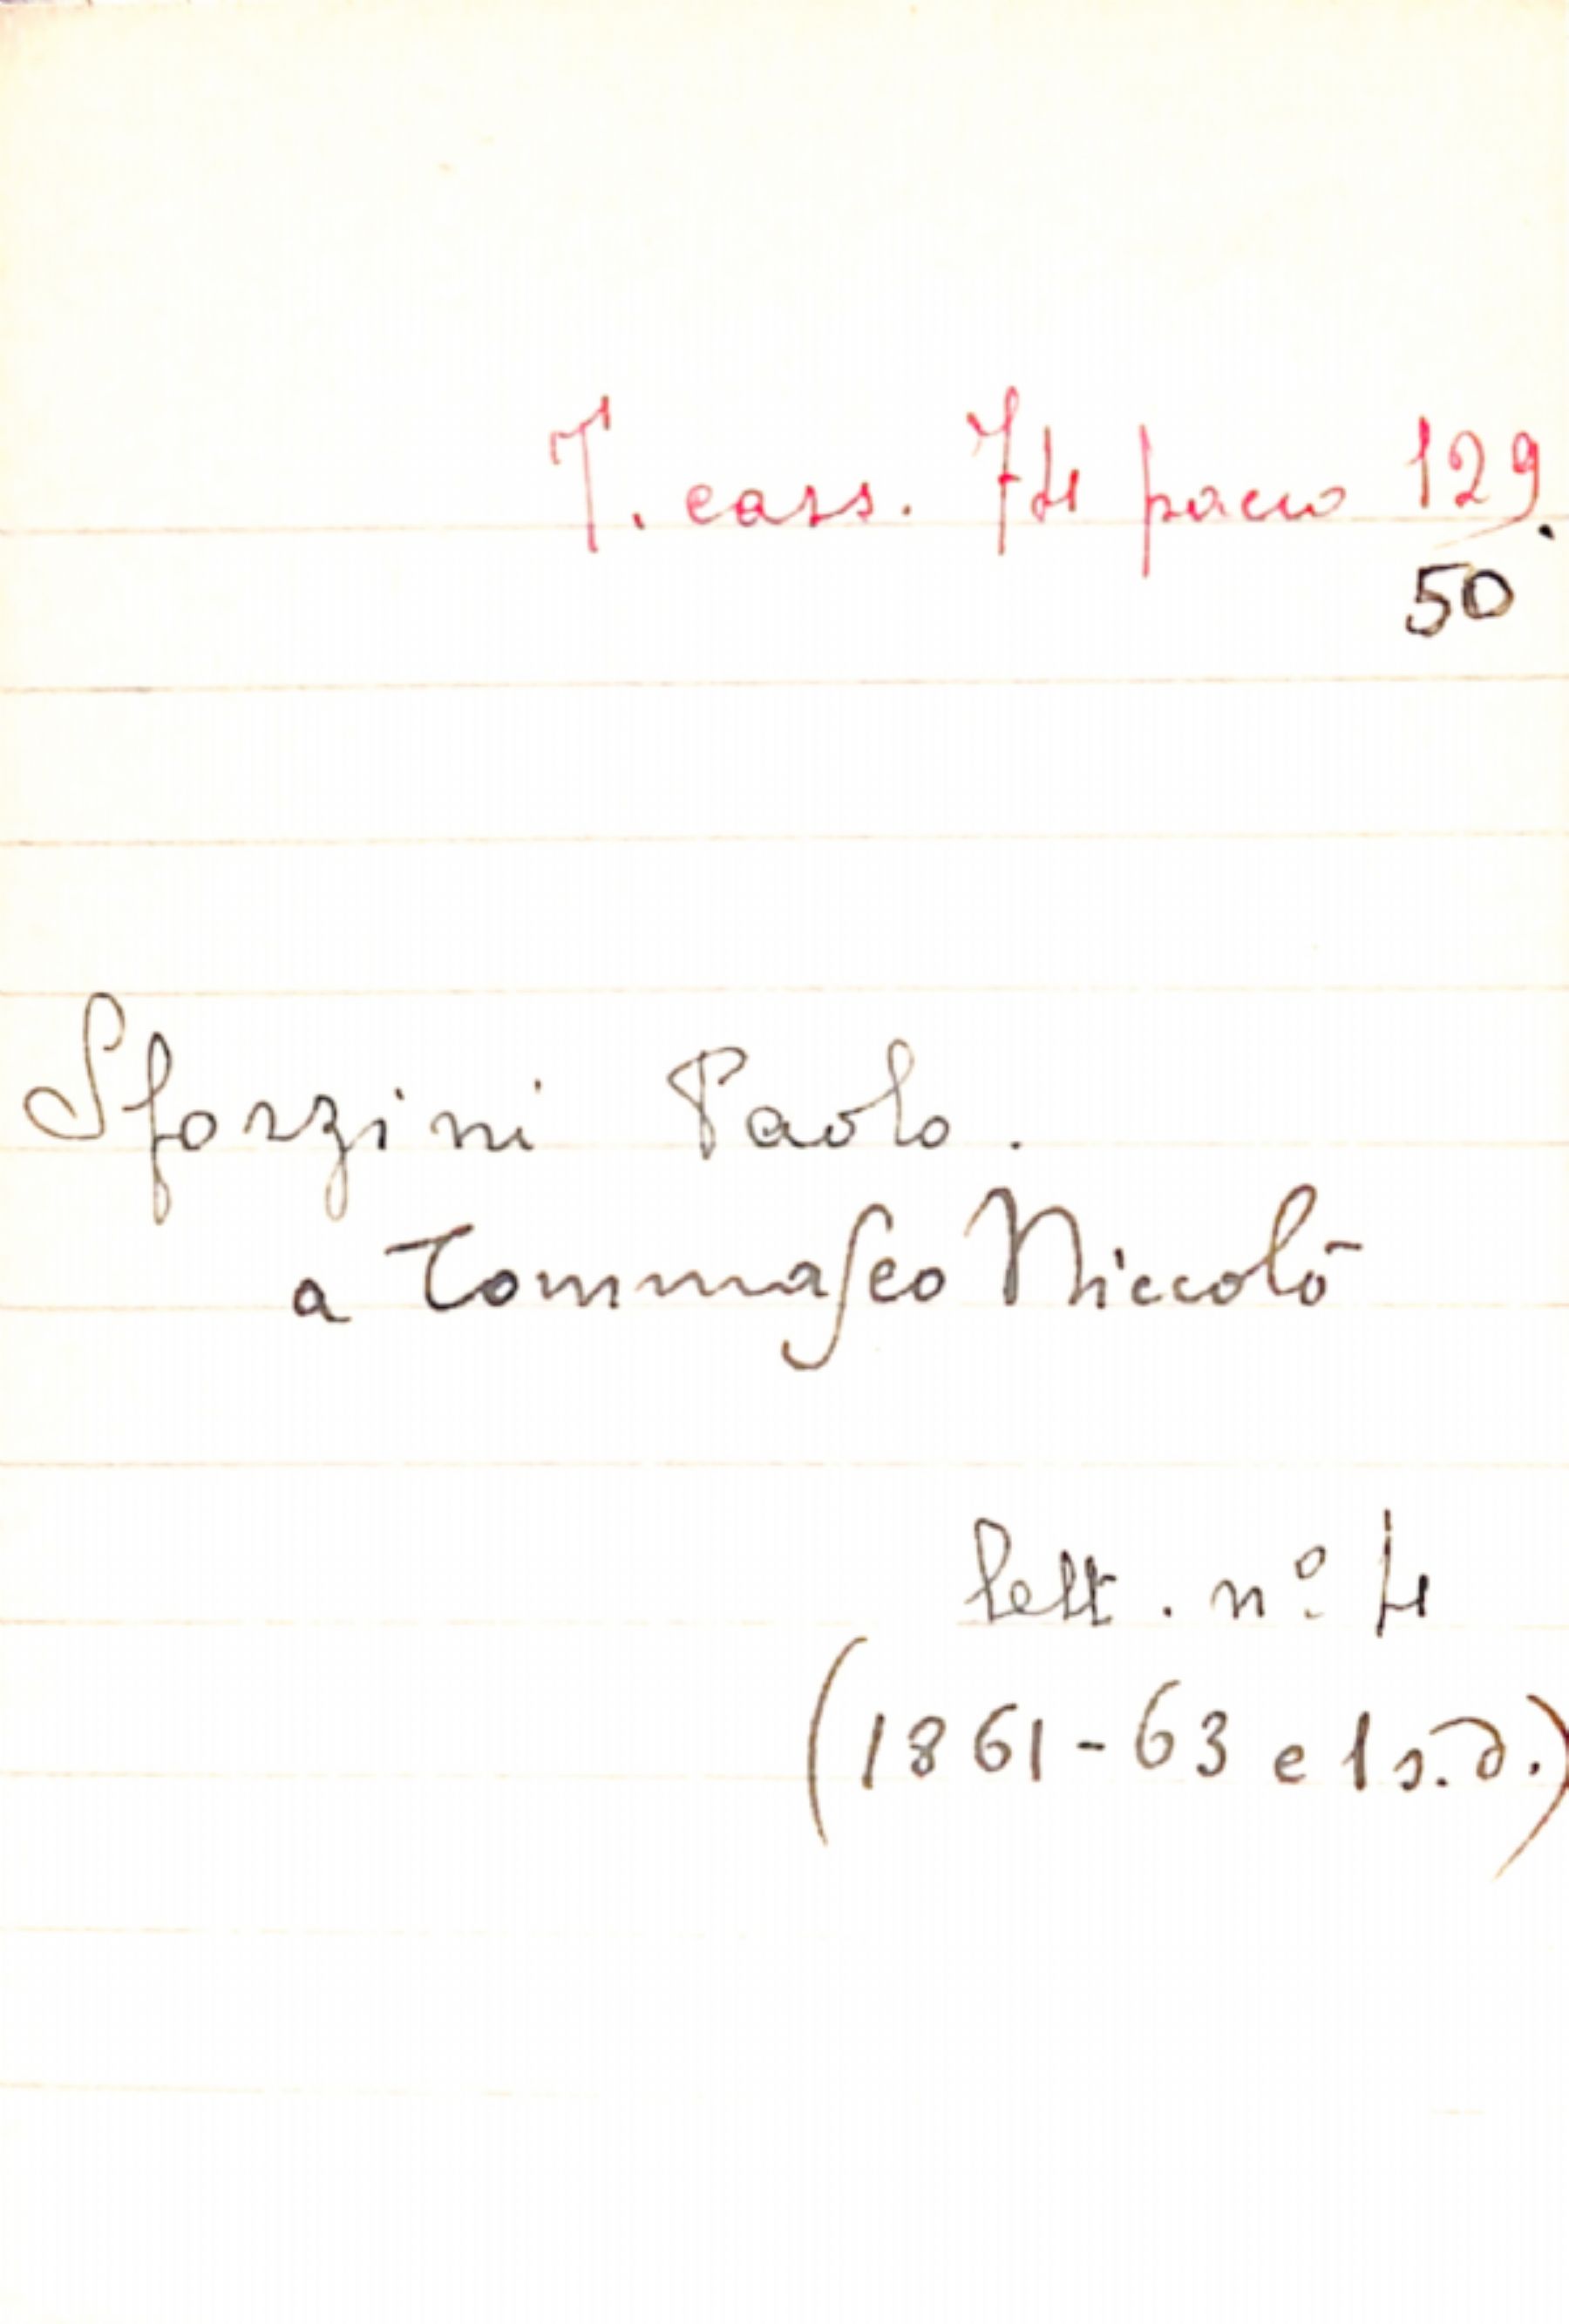 T. cass. 74 pacco 129.
50
Sforzini Paolo.
a Tommaseo Niccolò
lett. nº 4
(1861-63 e 1 s.d.)